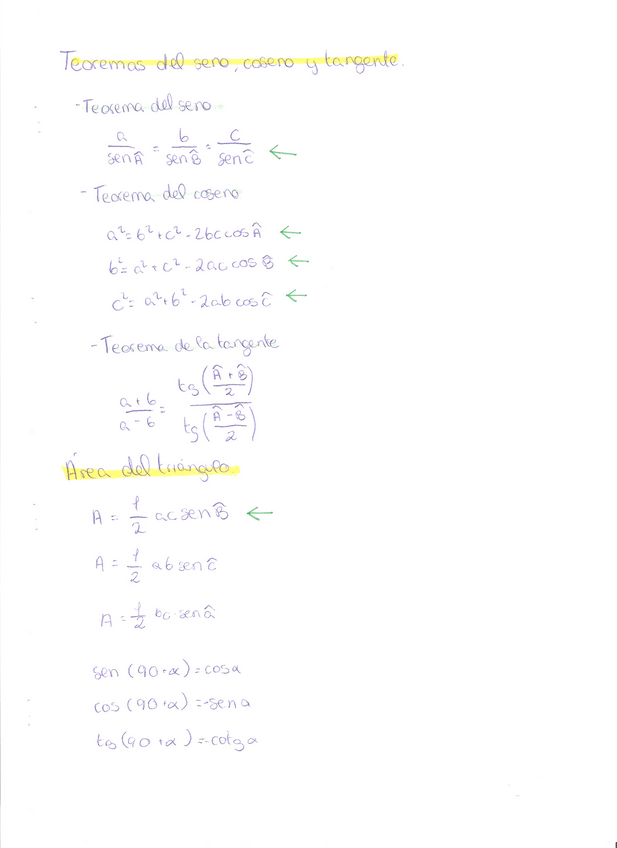 Teoremas del seno, coseno y tangente.
- Teorema del seno
a/sen Â = b/sen B̂ = c/sen Ĉ ←
- Teorema del coseno
a² = b² + c² - 2bc cos Â ←
b² = a² + c² - 2ac cos B̂ ←
c² = a² + b² - 2ab cos Ĉ ←
- Teorema de la tangente
(a + b)/(a - b) = tg((Â + B̂)/2)/tg((Â - B̂)/2)
Área del triángulo
A = 1/2 ac sen B̂ ←
A = 1/2 ab sen ĉ
A = 1/2 bc · sen â
sen (90 + α) = cos α
cos (90 + α) = - sen α
tg (90 + α) = - cotg α